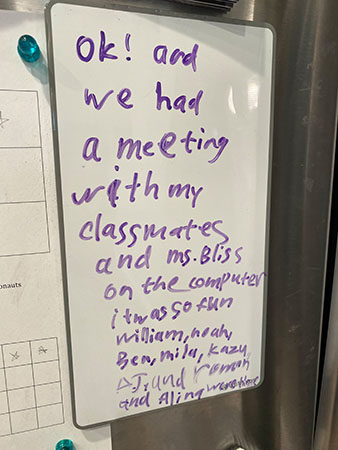 ok! and
we had
a meeting
with my
classmates
and ms. Bliss
on the computer
it was so fun
william, noah,
Ben, mila, Kazu,
AJ, and roman
and Alina were there
onauts